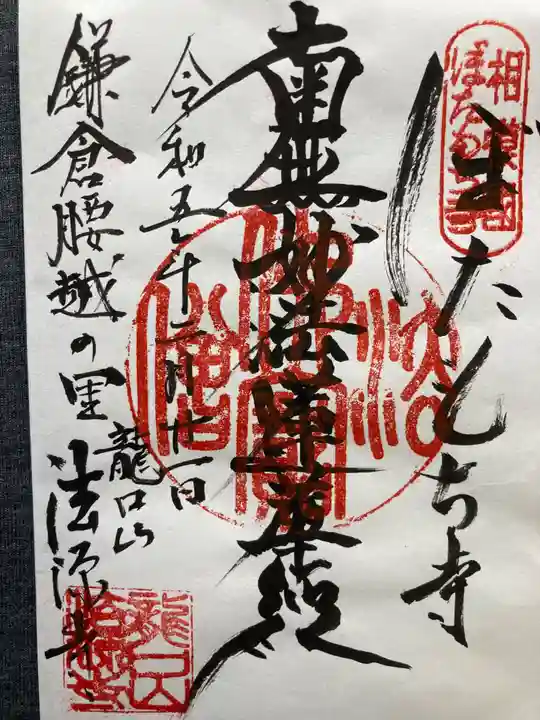 相模國
ぼたもち寺
ぼたもち寺
南無妙法蓮華経
令和五年十二月廿一日
龍口山
鎌倉腰越の里
法源寺